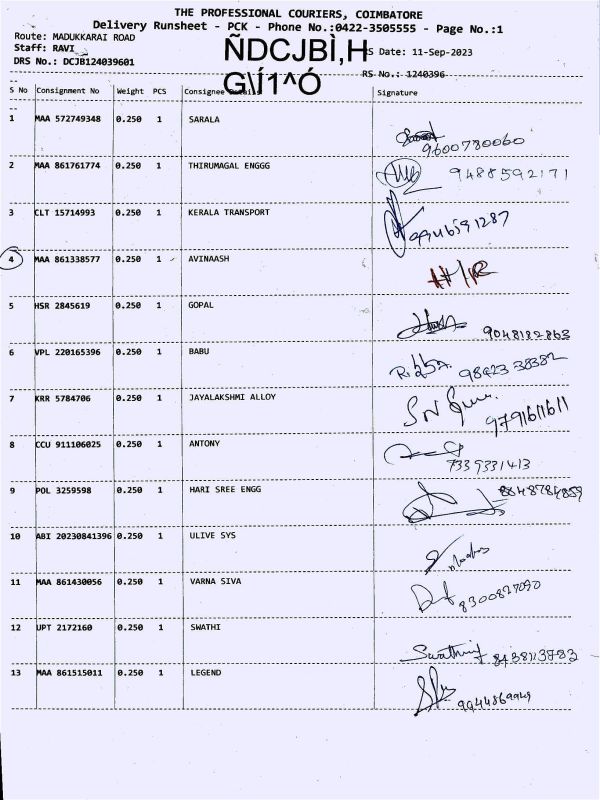 THE PROFESSIONAL COURIERS, COIMBATORE
Delivery Runsheet - PCK - Phone No.:0422-3505555 - Page No.:1
Route: MADUKKARAI ROAD
Staff: RAVI
DRS No.: DCJB124039601
ÑDCJBÌ,H
G\Í1^Ó
RS Date: 11-Sep-2023
RS No.: 1240396
S No Consignment No Weight PCS Consignee Details Signature
1 MAA 572749348 0.250 1 SARALA
9600780060
2 MAA 861761774 0.250 1 THIRUMAGAL ENGGG 9488592171
3 CLT 15714993 0.250 1 KERALA TRANSPORT
4 MAA 861338577 0.250 1 AVINAASH
5 HSR 2845619 0.250 1 GOPAL
9048182863
6 VPL 220165396 0.250 1 BABU
98423 38382
7 KRR 5784706 0.250 1 JAYALAKSHMI ALLOY
9791611611
8 CCU 911106025 0.250 1 ANTONY
7339331413
9 POL 3259598 0.250 1 HARI SREE ENGG
10 ABI 20230841396 0.250 1 ULIVE SYS
11 MAA 861430056 0.250 1 VARNA SIVA
8300827090
12 UPT 2172160 0.250 1 SWATHI
Swathi 8438113783
13 MAA 861515011 0.250 1 LEGEND
9944869949